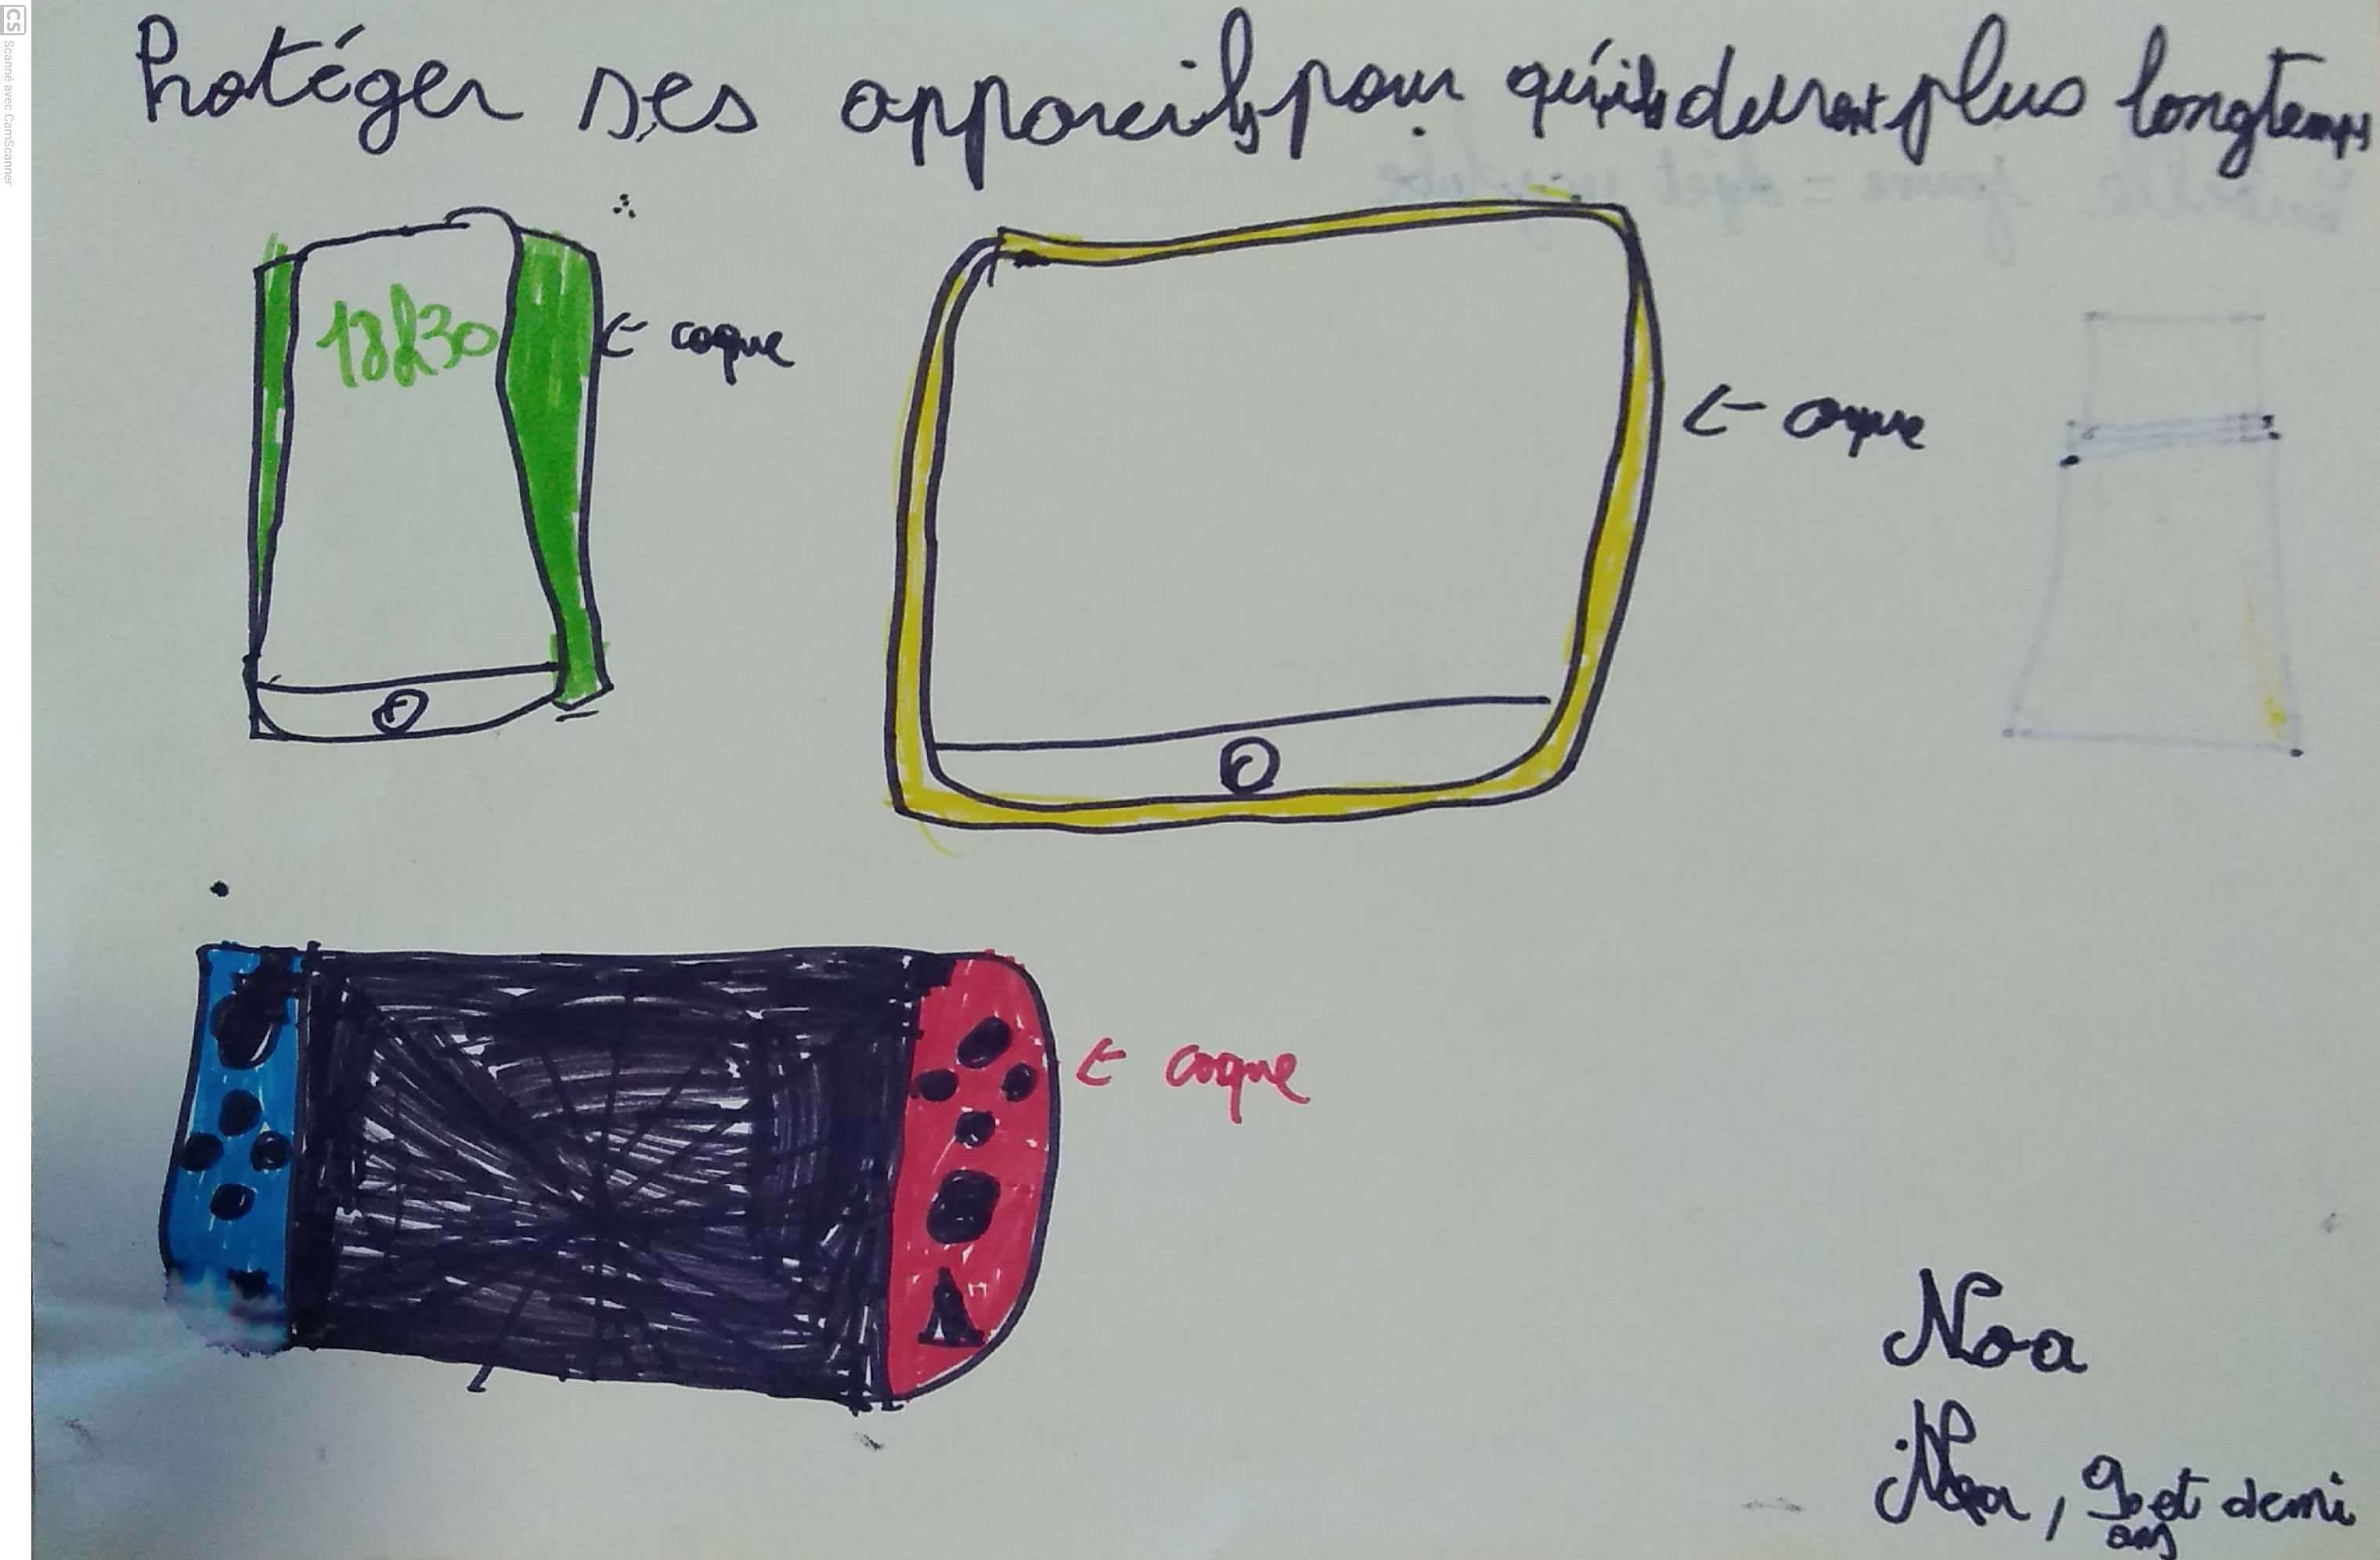 Protéger ses appareils pour qu'ils durent plus longtemps
18h30
← coque
← coque
← coque
Noa
Noa, 9 ans et demi
CS Scanné avec CamScanner